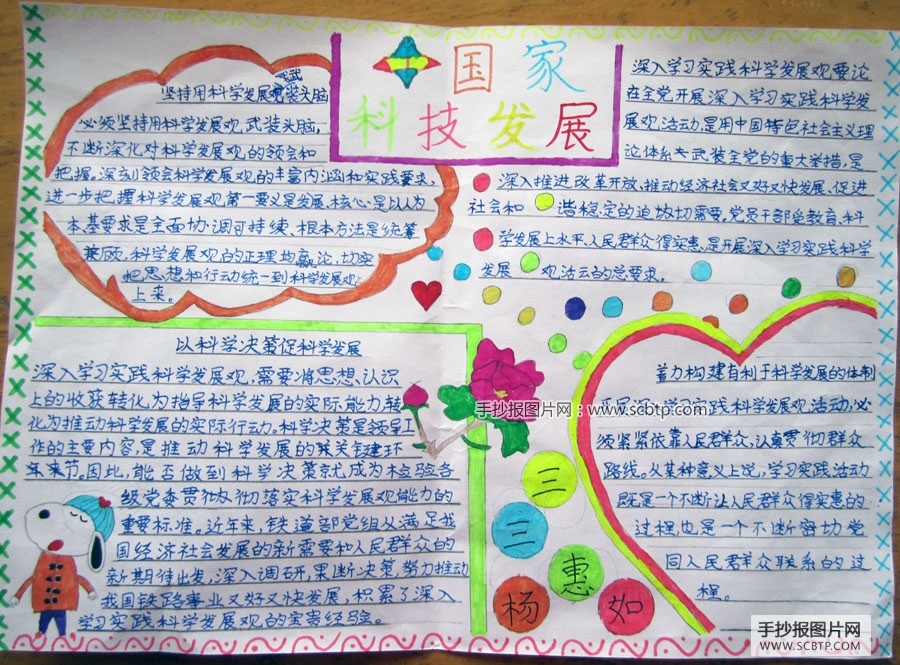 国家
科技发展
坚持用科学发展观武装头脑
必须坚持用科学发展观,武装头脑,
不断深化对科学发展观的领会和
把握。深刻领会科学发展观的丰富内涵和实践要求,
进一步把握科学发展观第一要义是发展,核心是以人为
本,基要求是全面协调可持续、根本方法是统筹
兼顾,科学发展观的正理均高论,切实
把思想和行动统一到科学发展观
上来。
深入学习实践科学发展观要论
在全党开展深入学习实践科学发
展观,活动,是用中国特色社会主义理
论体系武装全党的重大举措,是
深入推进改革开放、推动经济社会又好又快发展、促进
社会和谐稳定的迫切需要,党员干部受教育、科
学发展上水平、人民群众得实惠,是开展深入学习实践科学
发展观活动的总要求。
以科学决策促科学发展
深入学习实践科学发展观,需要将思想、认识
上的收获转化,为指导科学发展的实际能力,转
化为推动科学发展的实际行动。科学决策是领导工
作的主要内容,是推动科学发展的关键环
节。因此,能否做到科学决策就成为检验各
级党委贯彻落实科学发展观能力的
重要标准。近年来,铁道部党组从满足我
国经济社会发展的新需要和人民群众的
新期待出发,深入调研,果断决策,努力推动
我国铁路事业又好又快发展,积累了深入
学习实践科学发展观的宝贵经验。
着力构建有利于科学发展的体制
学习实践科学发展观,活动,必
须紧紧依靠人民群众,认真贯彻群众
路线。从某种意义上说,学习实践活动
既是一个不断让人民群众得实惠的
过程,也是一个不断密切党
同人民群众联系的过
程。
三
三
惠
杨
如
手抄报图片网:www.scbtp.com
手抄报图片网
WWW.SCBTP.COM